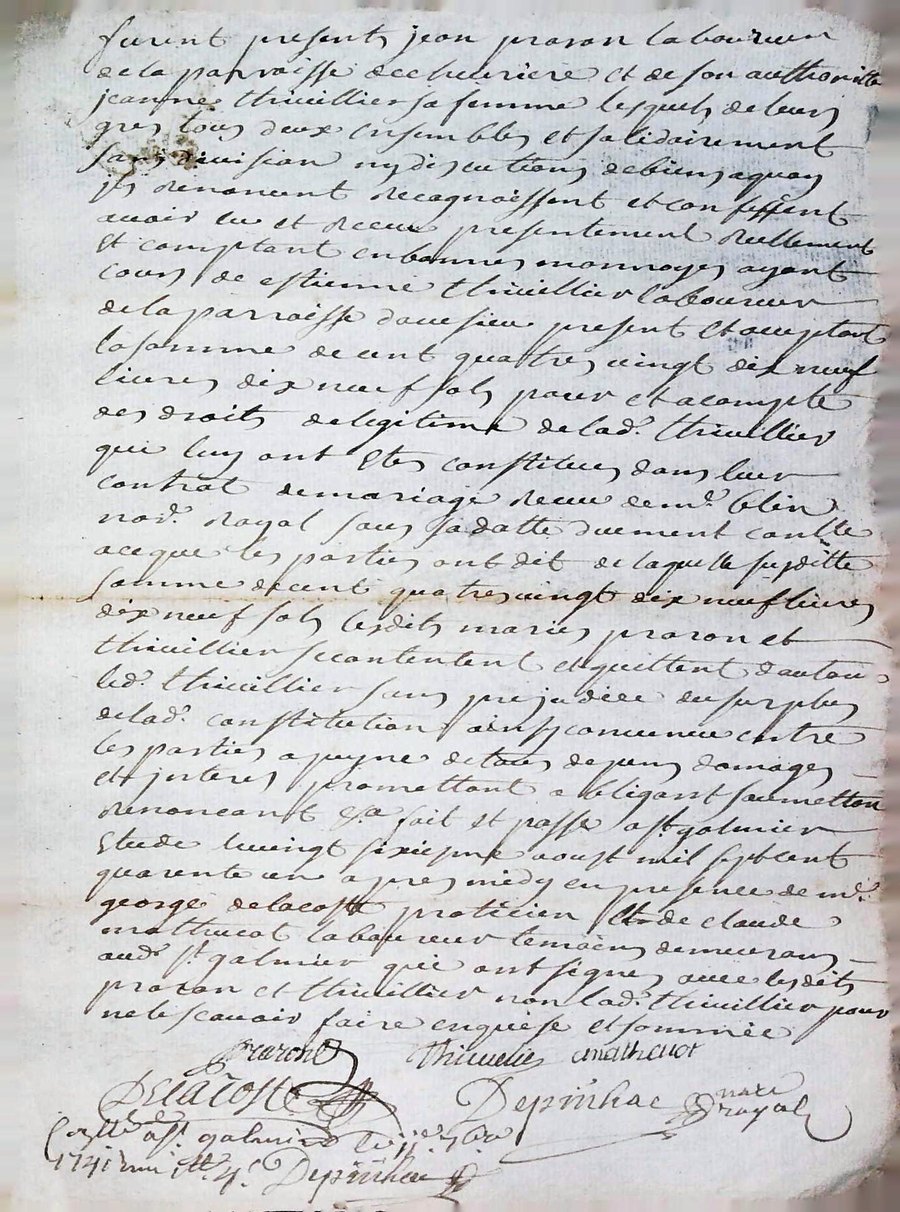 furent presents jean prazon laboureur
de la parroisse de chevriere et de son authoritte
jeanne thivillier sa femme lesquels de leurs
gres tous deux ensembles et solidairement
sans division ny discutions de biens a quoy
ils renoncent recognoissent et confessent
avoir eu et receu presentement reellement
et comptant en bonnes monnoyes ayant
cours de estienne thivillier laboureur
de la parroisse davesieu present et acceptant
la somme de cent quatres vingt dix neuf
livres dix neuf sols pour et a compte
des droits de legitime de lad. thivillier
qui luy ont etes constitues dans leur
contrat de mariage receu de me. blein
nore. royal sous sa datte duement contlle
a ce que les parties ont dit de laquelle susditte
somme de cent quatres vingt dix neuf livres
dix neuf sols lesdits maries prazon et
thivillier se contentent et quittent dautan
led. thivillier sans prejudice du surplus
de lad. constitution ainsy convenu entre
les parties a peyne de tous depens domages
et interes promettant obligant soumettan
renoncant &a fait et passe a st galmier
etude le vingt sixieme aoust mil sept cent
quarente un apres midy en presence de mr.
george delacoste praticien et de claude
mathevot laboureur temoins demeurans
aud. st galmier qui ont signes avec lesdits
prazon et thivillier non lad. thivillier pour
ne le scavoir faire enquise et sommée
prazon thivillie mathevot
Delacoste Depinhac nore royal
Contllé a st. galmier le 7bre
1741 Depinhac